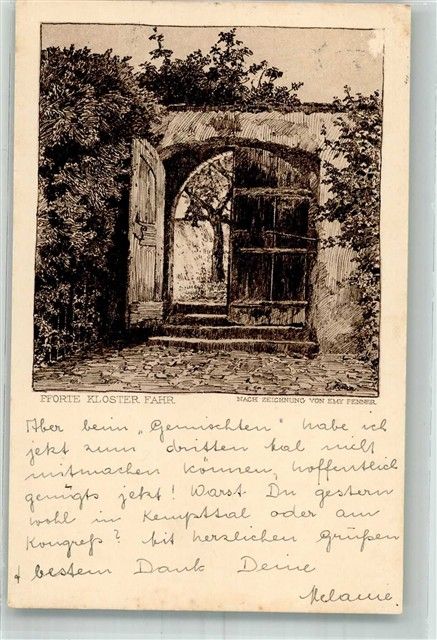 PFORTE KLOSTER FAHR.
NACH ZEICHNUNG VON EMY FENNER.
Aber beim „Gemischten“ habe ich
jetzt zum dritten Mal nicht
mitmachen können, hoffentlich
genügts jetzt! Warst Du gestern
wohl in Kempttal oder am
Kongreß? Mit herzlichen Grüßen
+ bestem Dank Deine
Melanie.